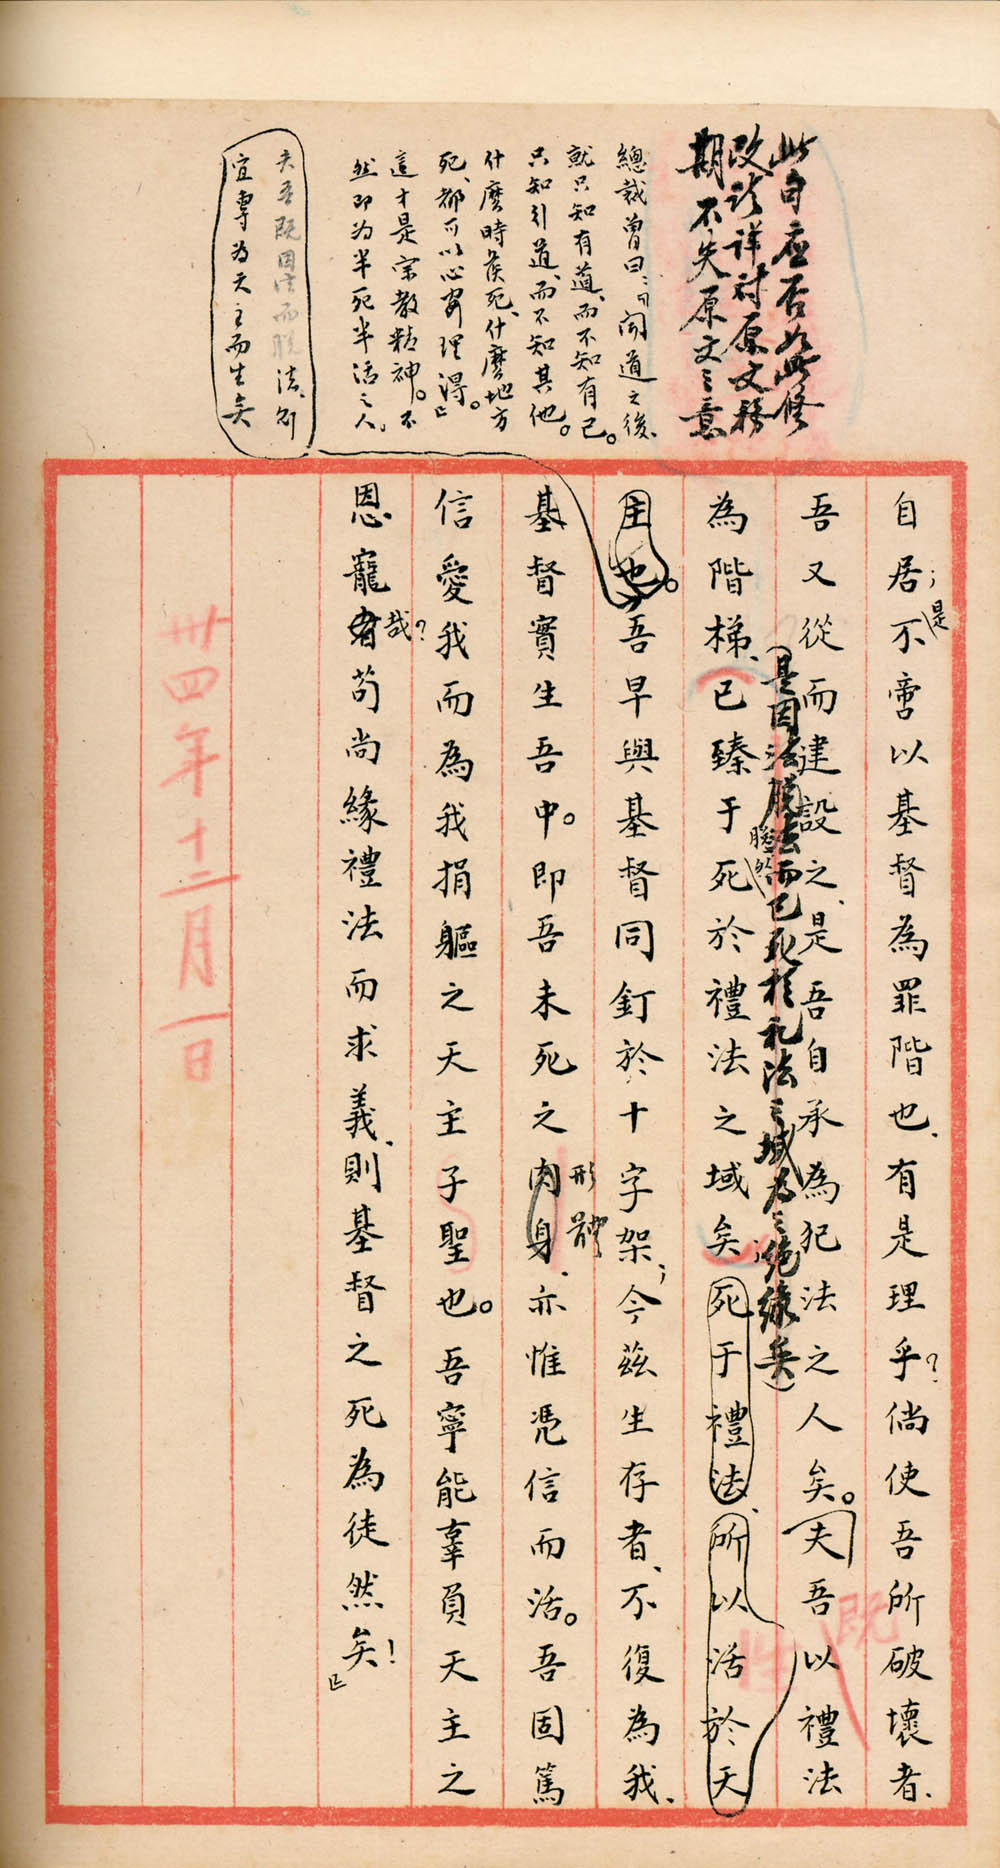 此句應否如此修
改請詳討原文務
期不失原文之意
總裁曾曰:「聞道之後、
就只知有道、而不知有己。
只知引道、而不知其他。
什麼時候死、什麼地方
死、都可以心安理得。」
這才是宗教精神。不
然即為半死半活之人。
夫吾既因法而脫法、則
宜專為天主而生矣
自居;不啻以基督為罪階也、有是理乎?倘使吾所破壞者、
是
吾又從而建設之、是吾自承為犯法之人矣。夫吾以禮法
既
(是因法脫法而已死於礼法之域為之絕緣矣)
為階梯、已臻于死於禮法之域矣;死于禮法、所以活於天
性
主也。吾早與基督同釘於十字架;今茲生存者、不復為我、
基督實生吾中。即吾未死之肉身、亦惟憑信而活。吾固篤
形體
信愛我而為我捐軀之天主子聖也。吾寧能辜負天主之
恩寵者哉?苟尚緣禮法而求義、則基督之死為徒然矣!」
卅四年十二月一日